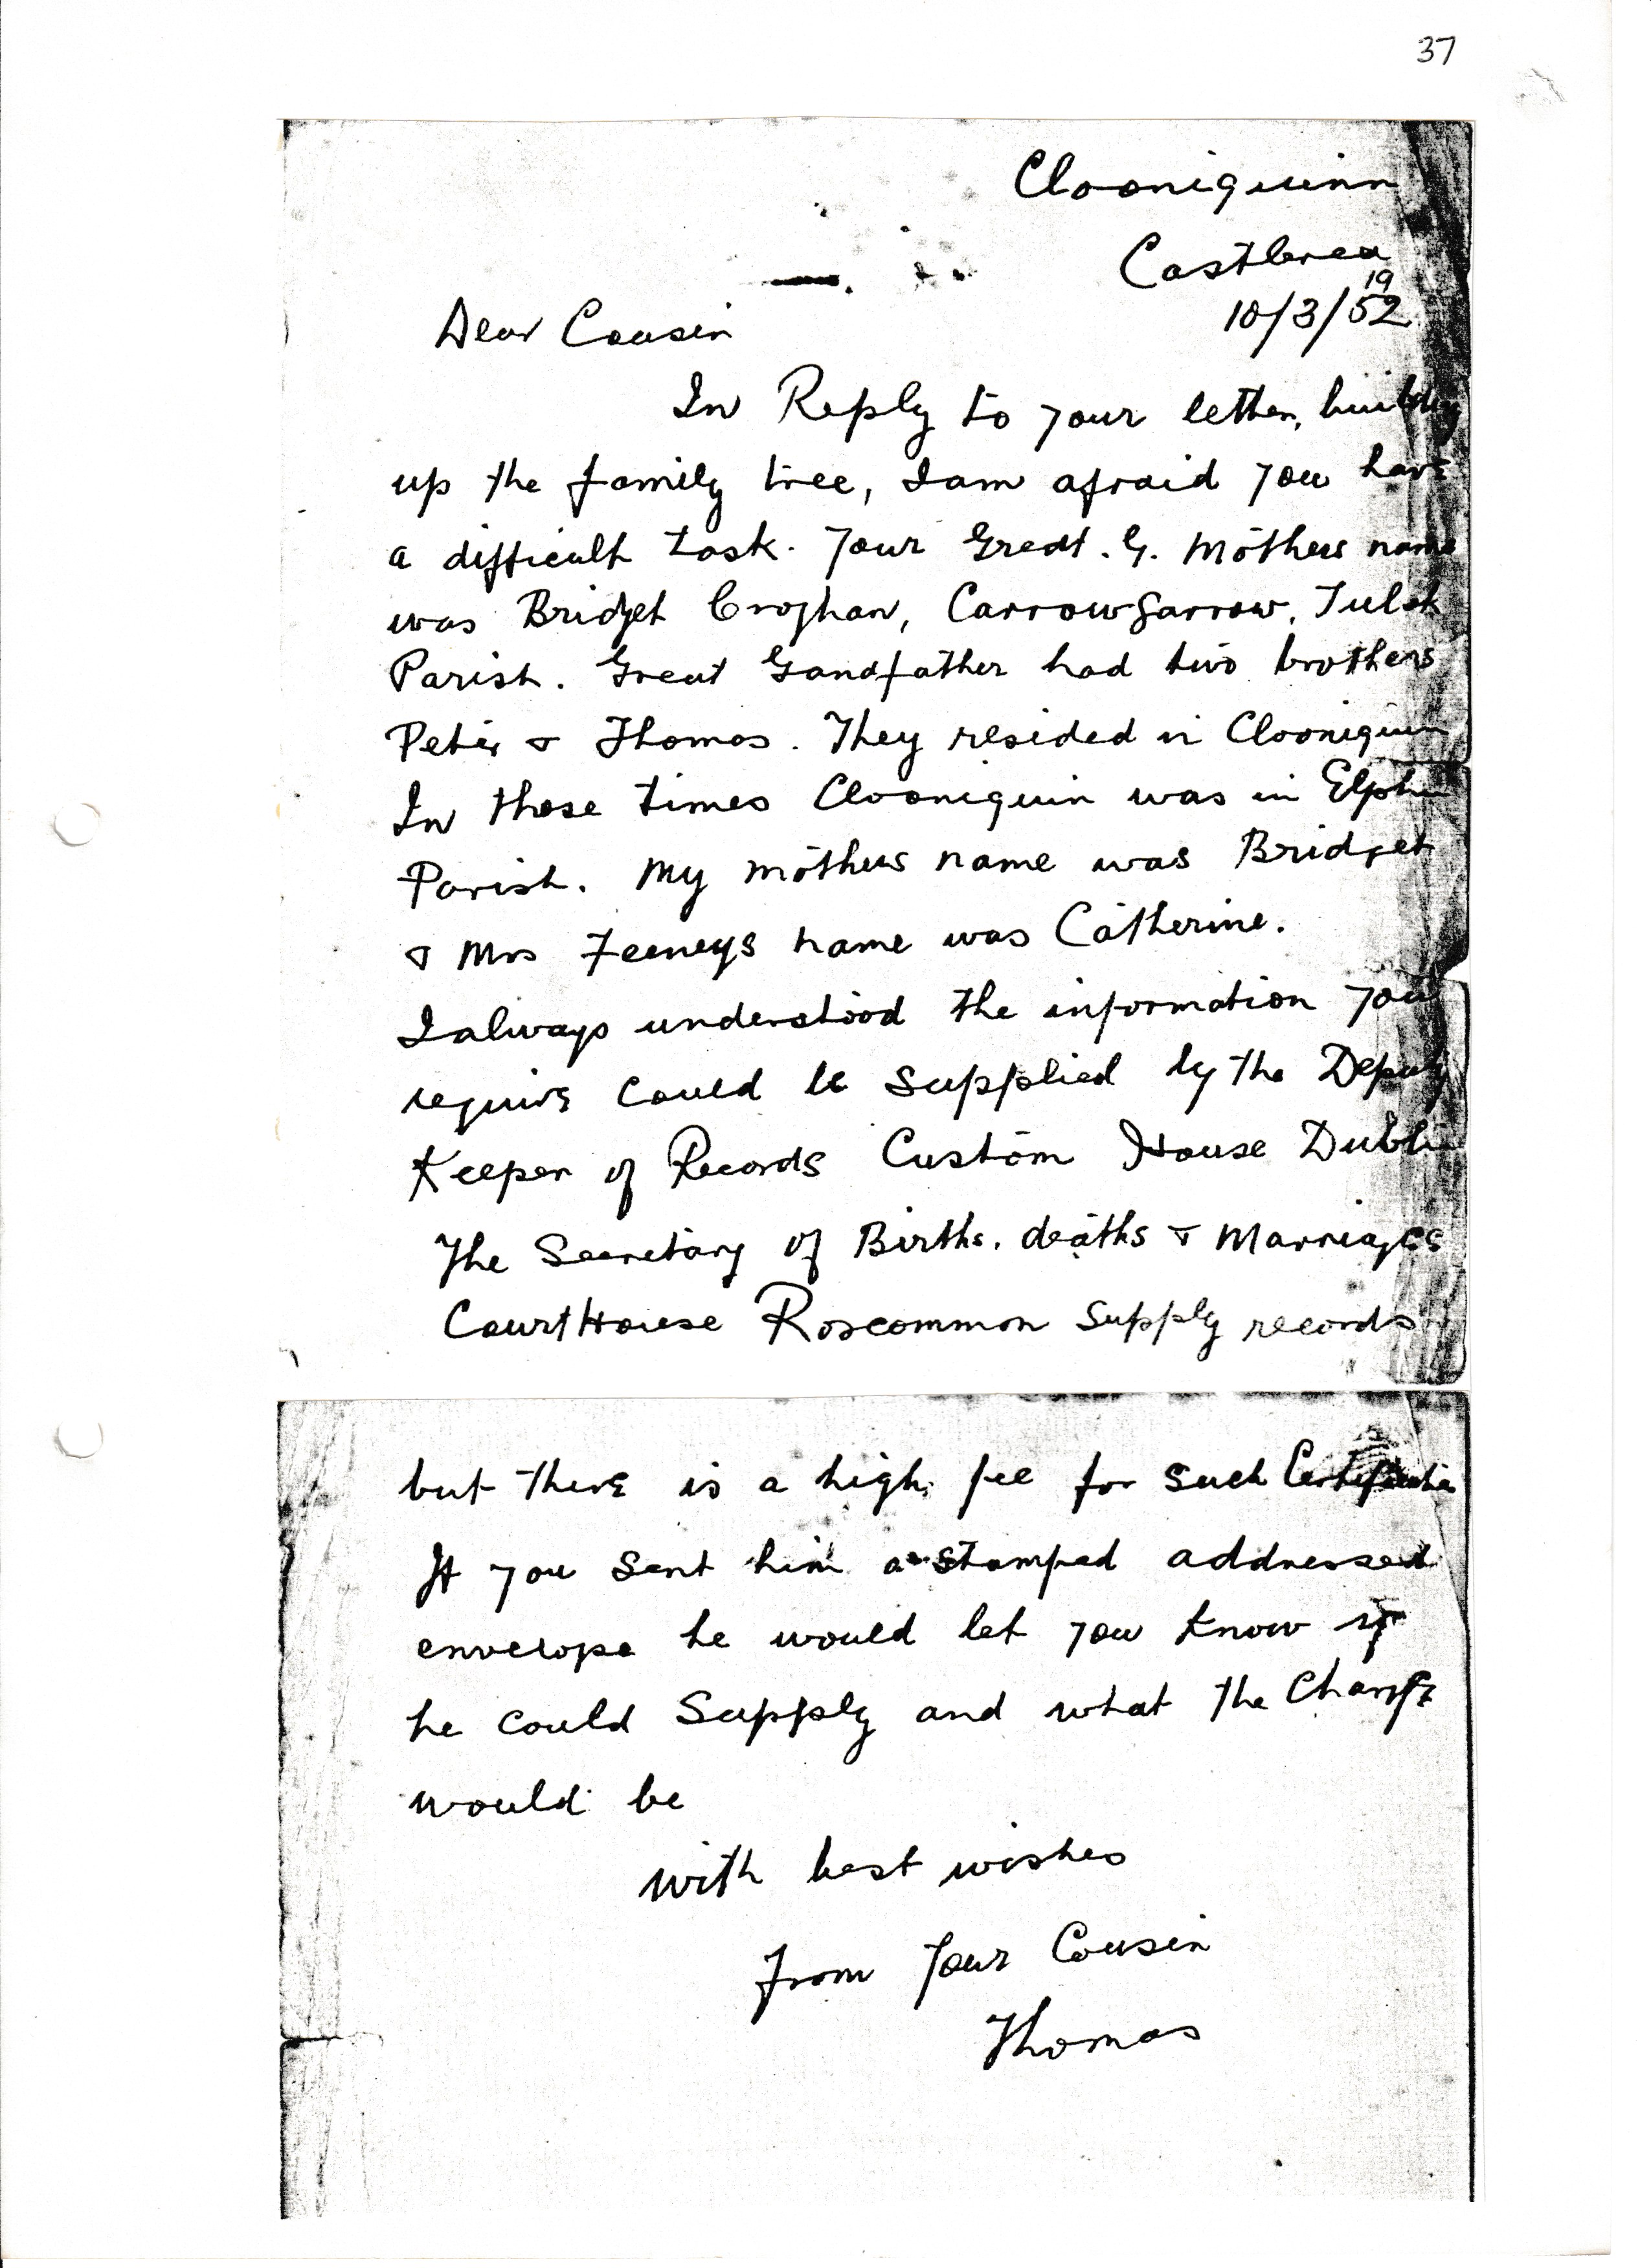 37
Clooniquinn
Castlerea
19
10/3/52
Dear Cousin
In Reply to your letter, building
up the family tree, I am afraid you have
a difficult task. Your Great. G. Mothers name
was Bridget Croghan, Carrowgarrow, Tulsk
Parish. Great Gandfather had two brothers
Peter & Thomas. They resided in Clooniquin
In those times Clooniquin was in Elphin
Parish. My mothers name was Bridget
& Mrs Feeneys name was Catherine.
I always understood the information you
require could be supplied by the Deputy
Keeper of Records Custom House Dublin
The Secretary of Births, deaths & Marriages
CourtHouse Roscommon Supply records
but there is a high fee for such
If you sent him a stamped addressed
envelope he would let you know if
he could Supply and what the Charge
would be
with best wishes
from Your Cousin
Thomas